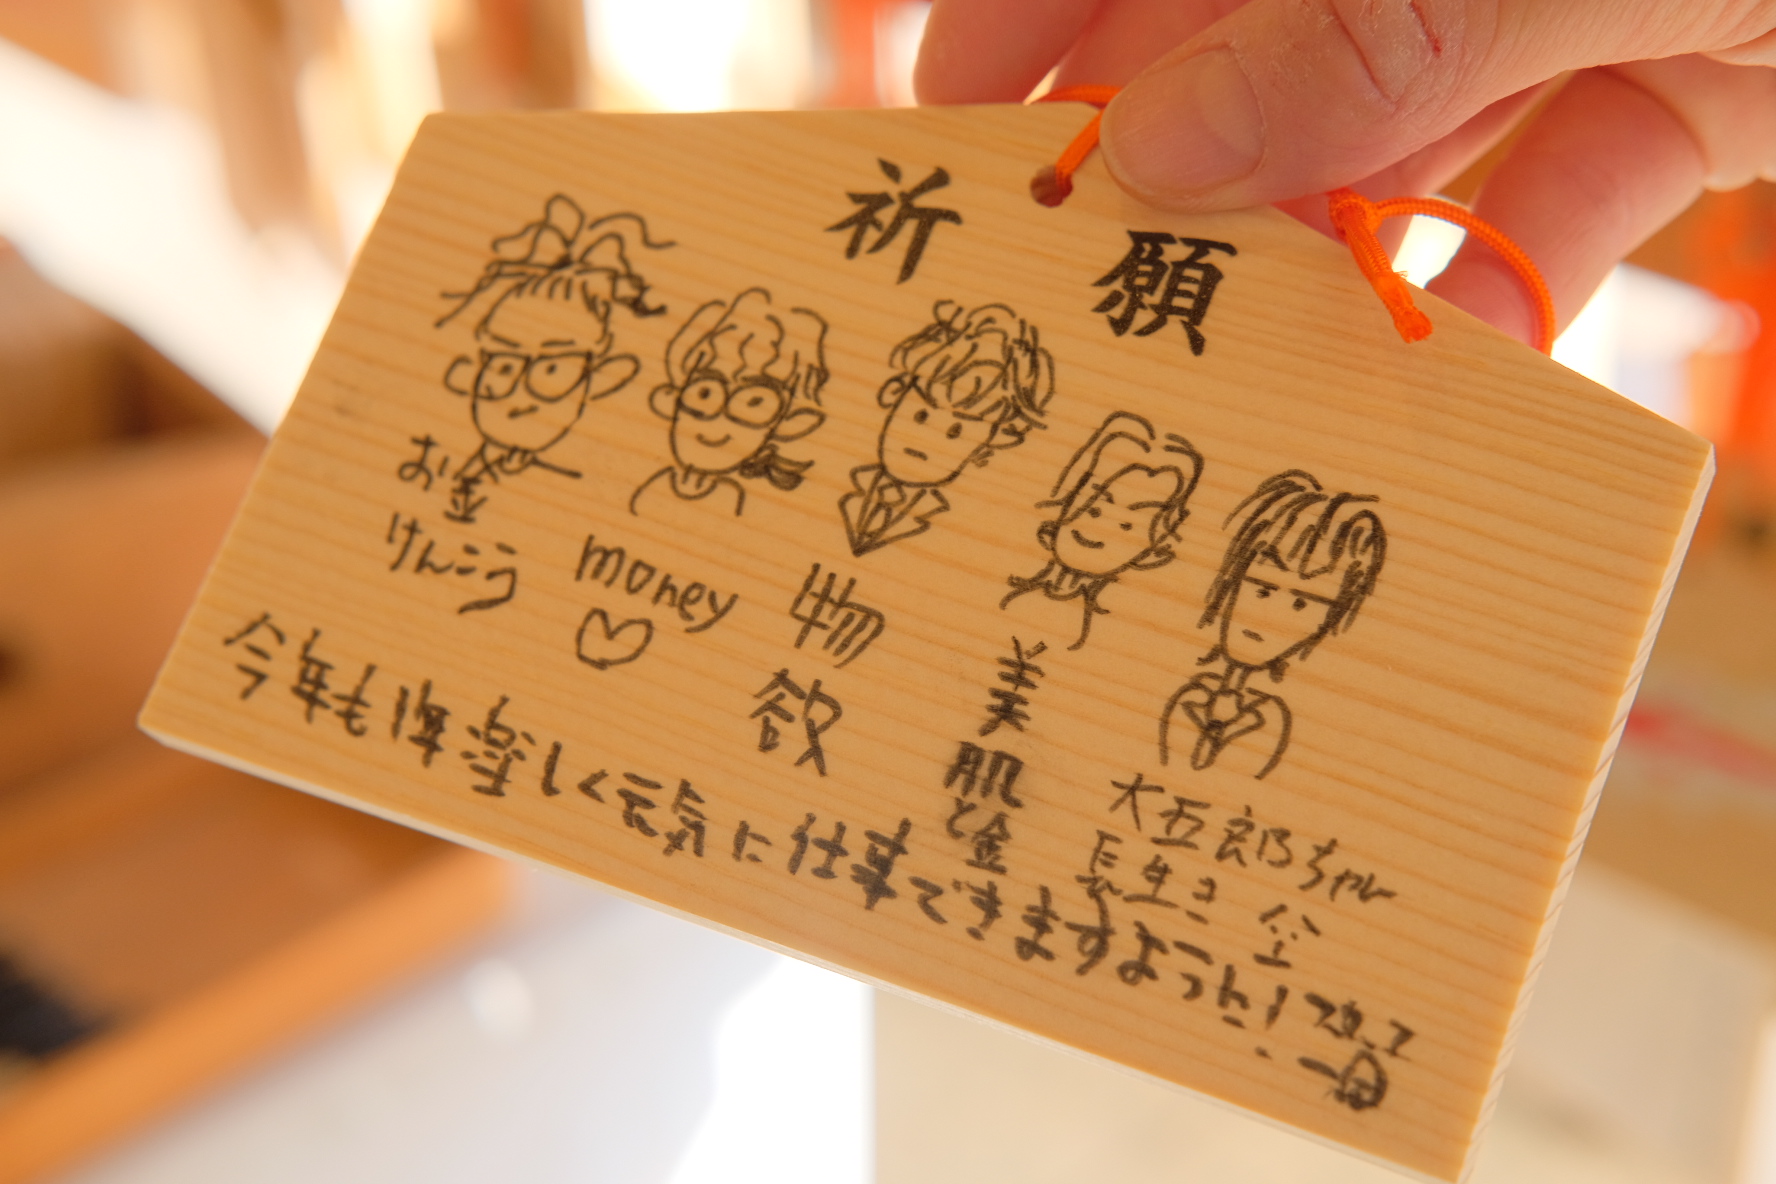 祈願
お金
けんこう
money
物欲
美肌と金
大五郎ちゃん
長生き 金
今年も1年楽しく元気に仕事できますよーに!
一同